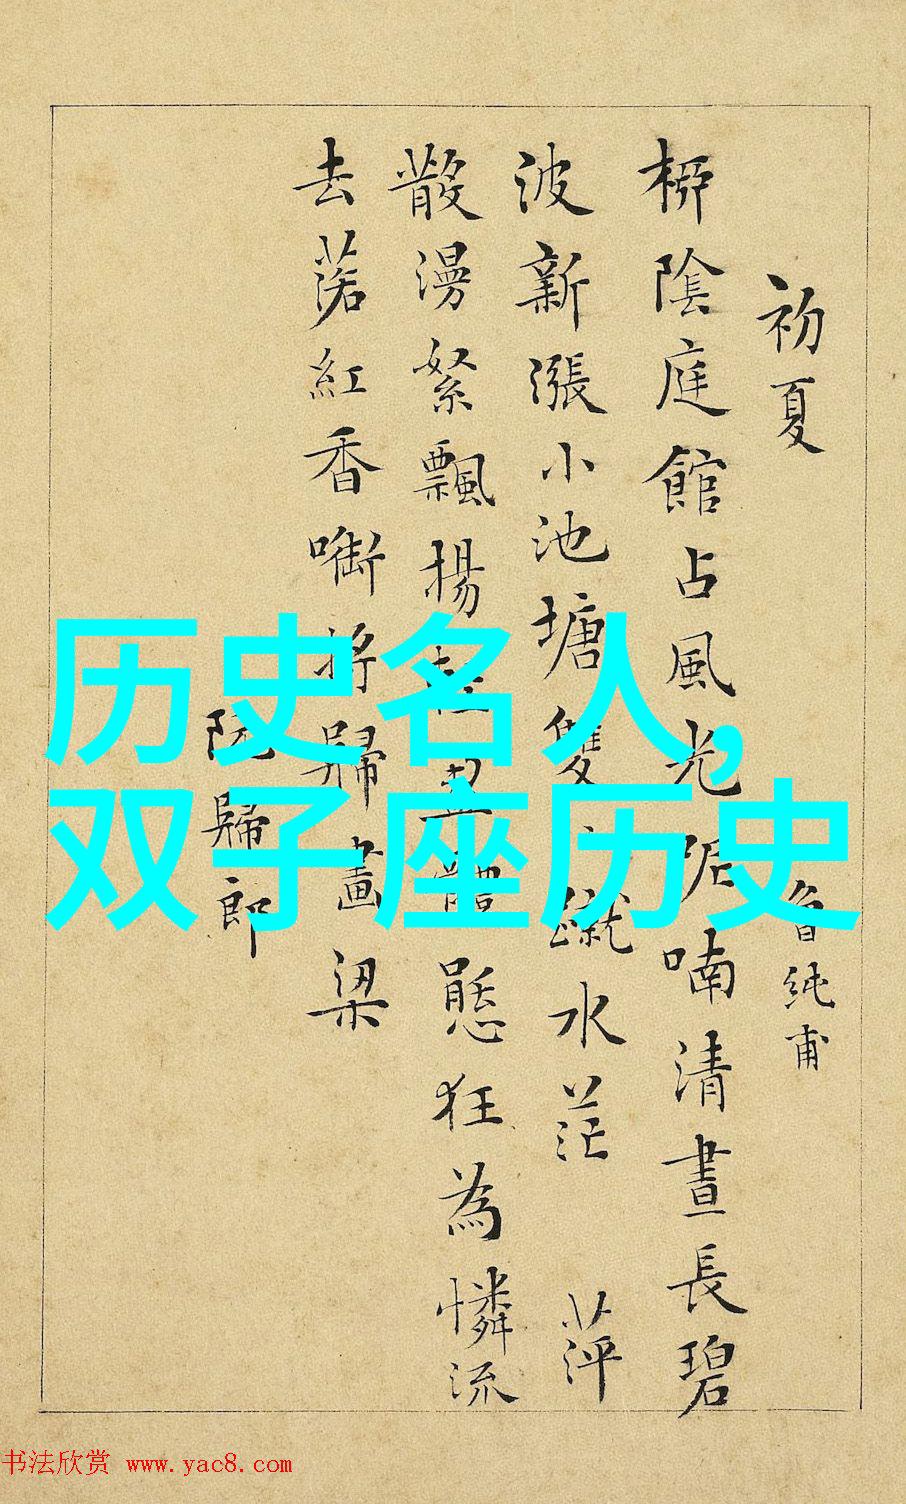 初夏
魯純甫
桺陰庭館占風光呢喃清晝長碧
波新漲小池塘雙蹴水茫萍
散漫絮飄揚體態狂為憐流
去落紅香啣將歸畫梁
阮歸郎
历史名人,
双子座历史
书法欣赏 www.yac8.com